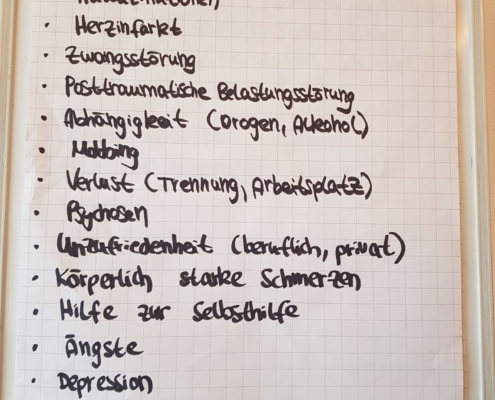 • Herzinfarkt
• Zwangsstörung
• Posttraumatische Belastungsstörung
• Abhängigkeit (Drogen, Alkohol)
• Mobbing
• Verlust (Trennung, Arbeitsplatz)
• Psychosen
• Unzufriedenheit (beruflich, privat)
• Körperlich starke Schmerzen
• Hilfe zur Selbsthilfe
• Ängste
• Depression